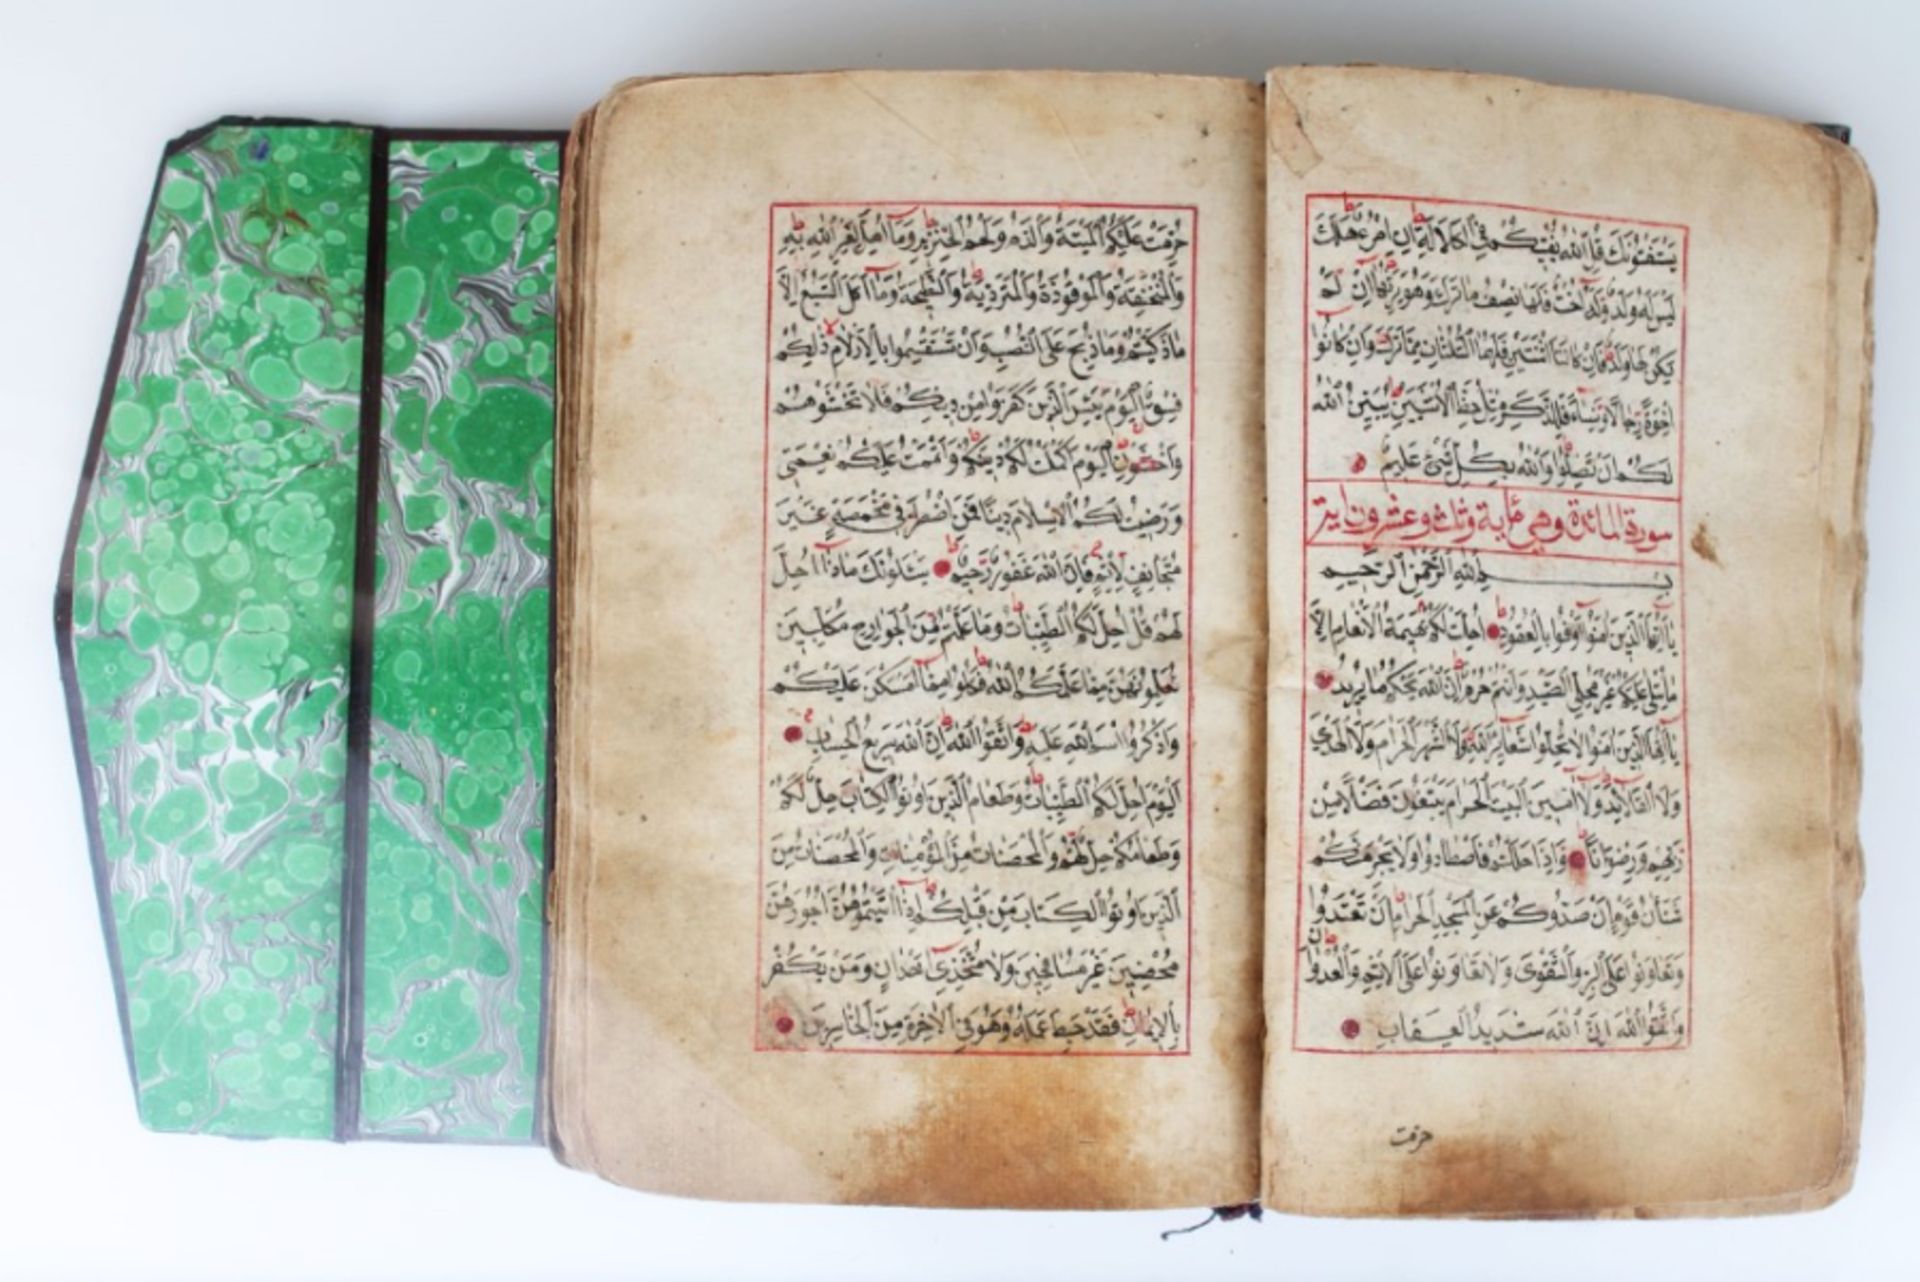 يَسْتَفْتُونَكَ قُلِ اللّٰهُ يُفْتِيكُمْ فِي الْكَلَالَةِ إِنِ امْرُؤٌ هَلَكَ
لَيْسَ لَهُ وَلَدٌ وَلَهُ أُخْتٌ فَلَهَا نِصْفُ مَا تَرَكَ وَهُوَ يَرِثُهَا إِنْ لَمْ
يَكُنْ لَهَا وَلَدٌ فَإِنْ كَانَتَا اثْنَتَيْنِ فَلَهُمَا الثُّلُثَانِ مِمَّا تَرَكَ وَإِنْ كَانُوا
إِخْوَةً رِجَالًا وَنِسَاءً فَلِلذَّكَرِ مِثْلُ حَظِّ الْأُنْثَيَيْنِ يُبَيِّنُ اللّٰهُ
لَكُمْ أَنْ تَضِلُّوا وَاللّٰهُ بِكُلِّ شَيْءٍ عَلِيمٌ
سورة المائدة وهي مأية وثلث وعشرون اية
بِسْمِ اللّٰهِ الرَّحْمٰنِ الرَّحِيمِ
يَا أَيُّهَا الَّذِينَ اٰمَنُوا أَوْفُوا بِالْعُقُودِ أُحِلَّتْ لَكُمْ بَهِيمَةُ الْأَنْعَامِ إِلَّا
مَا يُتْلَى عَلَيْكُمْ غَيْرَ مُحِلِّي الصَّيْدِ وَأَنْتُمْ حُرُمٌ إِنَّ اللّٰهَ يَحْكُمُ مَا يُرِيدُ
يَا أَيُّهَا الَّذِينَ اٰمَنُوا لَا تُحِلُّوا شَعَائِرَ اللّٰهِ وَلَا الشَّهْرَ الْحَرَامَ وَلَا الْهَدْيَ
وَلَا الْقَلَائِدَ وَلَا اٰمِّينَ الْبَيْتَ الْحَرَامَ يَبْتَغُونَ فَضْلًا مِنْ
رَبِّهِمْ وَرِضْوَانًا وَإِذَا حَلَلْتُمْ فَاصْطَادُوا وَلَا يَجْرِمَنَّكُمْ
شَنَاٰنُ قَوْمٍ أَنْ صَدُّوكُمْ عَنِ الْمَسْجِدِ الْحَرَامِ أَنْ تَعْتَدُوا
وَتَعَاوَنُوا عَلَى الْبِرِّ وَالتَّقْوَى وَلَا تَعَاوَنُوا عَلَى الْإِثْمِ وَالْعُدْوَانِ
وَاتَّقُوا اللّٰهَ إِنَّ اللّٰهَ شَدِيدُ الْعِقَابِ
حرمت
حُرِّمَتْ عَلَيْكُمُ الْمَيْتَةُ وَالدَّمُ وَلَحْمُ الْخِنْزِيرِ وَمَا أُهِلَّ لِغَيْرِ اللّٰهِ بِهِ
وَالْمُنْخَنِقَةُ وَالْمَوْقُوذَةُ وَالْمُتَرَدِّيَةُ وَالنَّطِيحَةُ وَمَا أَكَلَ السَّبُعُ إِلَّا
مَا ذَكَّيْتُمْ وَمَا ذُبِحَ عَلَى النُّصُبِ وَأَنْ تَسْتَقْسِمُوا بِالْأَزْلَامِ ذٰلِكُمْ
فِسْقٌ الْيَوْمَ يَئِسَ الَّذِينَ كَفَرُوا مِنْ دِينِكُمْ فَلَا تَخْشَوْهُمْ
وَاخْشَوْنِ الْيَوْمَ أَكْمَلْتُ لَكُمْ دِينَكُمْ وَأَتْمَمْتُ عَلَيْكُمْ نِعْمَتِي
وَرَضِيتُ لَكُمُ الْإِسْلَامَ دِينًا فَمَنِ اضْطُرَّ فِي مَخْمَصَةٍ غَيْرَ
مُتَجَانِفٍ لِإِثْمٍ فَإِنَّ اللّٰهَ غَفُورٌ رَحِيمٌ يَسْئَلُونَكَ مَاذَا أُحِلَّ
لَهُمْ قُلْ أُحِلَّ لَكُمُ الطَّيِّبَاتُ وَمَا عَلَّمْتُمْ مِنَ الْجَوَارِحِ مُكَلِّبِينَ
تُعَلِّمُونَهُنَّ مِمَّا عَلَّمَكُمُ اللّٰهُ فَكُلُوا مِمَّا أَمْسَكْنَ عَلَيْكُمْ
وَاذْكُرُوا اسْمَ اللّٰهِ عَلَيْهِ وَاتَّقُوا اللّٰهَ إِنَّ اللّٰهَ سَرِيعُ الْحِسَابِ
الْيَوْمَ أُحِلَّ لَكُمُ الطَّيِّبَاتُ وَطَعَامُ الَّذِينَ أُوتُوا الْكِتَابَ حِلٌّ لَكُمْ
وَطَعَامُكُمْ حِلٌّ لَهُمْ وَالْمُحْصَنَاتُ مِنَ الْمُؤْمِنَاتِ وَالْمُحْصَنَاتُ مِنَ
الَّذِينَ أُوتُوا الْكِتَابَ مِنْ قَبْلِكُمْ إِذَا اٰتَيْتُمُوهُنَّ أُجُورَهُنَّ
مُحْصِنِينَ غَيْرَ مُسَافِحِينَ وَلَا مُتَّخِذِي أَخْدَانٍ وَمَنْ يَكْفُرْ
بِالْإِيمَانِ فَقَدْ حَبِطَ عَمَلُهُ وَهُوَ فِي الْاٰخِرَةِ مِنَ الْخَاسِرِينَ